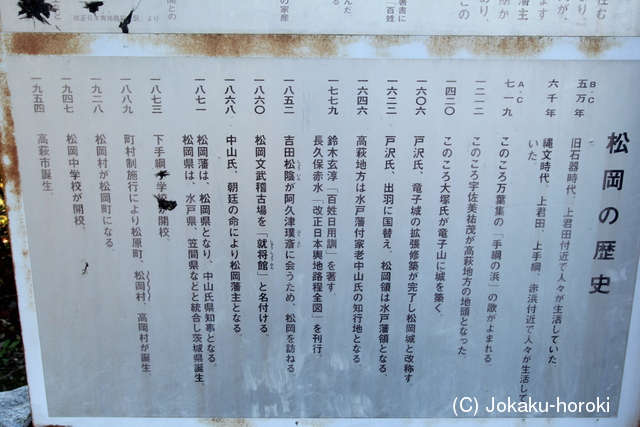 松岡の歴史
B.C.
五万年 旧石器時代、上君田付近で人々が生活していた
六千年 縄文時代、上君田、上手綱、赤浜付近で人々が生活して
いた。
A.C.
七一九 このころ万葉集の「手綱の浜」の歌がよまれる。
一二一二 このころ宇佐美祐茂が高萩地方の地頭となった。
一四二〇 このころ大塚氏が竜子山に城を築く。
一六〇六 戸沢氏、竜子城の拡張修築が完了し松岡城と改称す
一六二二 戸沢氏、出羽に国替え、松岡領は水戸藩領となる。
一六四六 高萩地方は水戸藩付家老中山氏の知行地となる
一七七九 鈴木玄淳「百姓日用訓」を著す。
長久保赤水「改正日本輿地路程全図」を刊行。
一八五二 吉田松陰が阿久津璞斎に会うため、松岡を訪ねる
一八六〇 松岡文武稽古場を「就将館」と名付ける。
一八六八 中山氏、朝廷の命により松岡藩主となる。
一八七一 松岡藩は、松岡県となり、中山氏県知事となる。
松岡県は、水戸県、笠間県などと統合し茨城県誕生。
一八七三 下手綱小学校が開校。
一八八九 町村制施行により松原町、松岡村、高岡村が誕生。
一九二八 松岡村が松岡町になる。
一九四七 松岡中学校が開校。
一九五四 高萩市誕生。
「改正日本輿地路程全図」より
(C) Jokaku-horoki